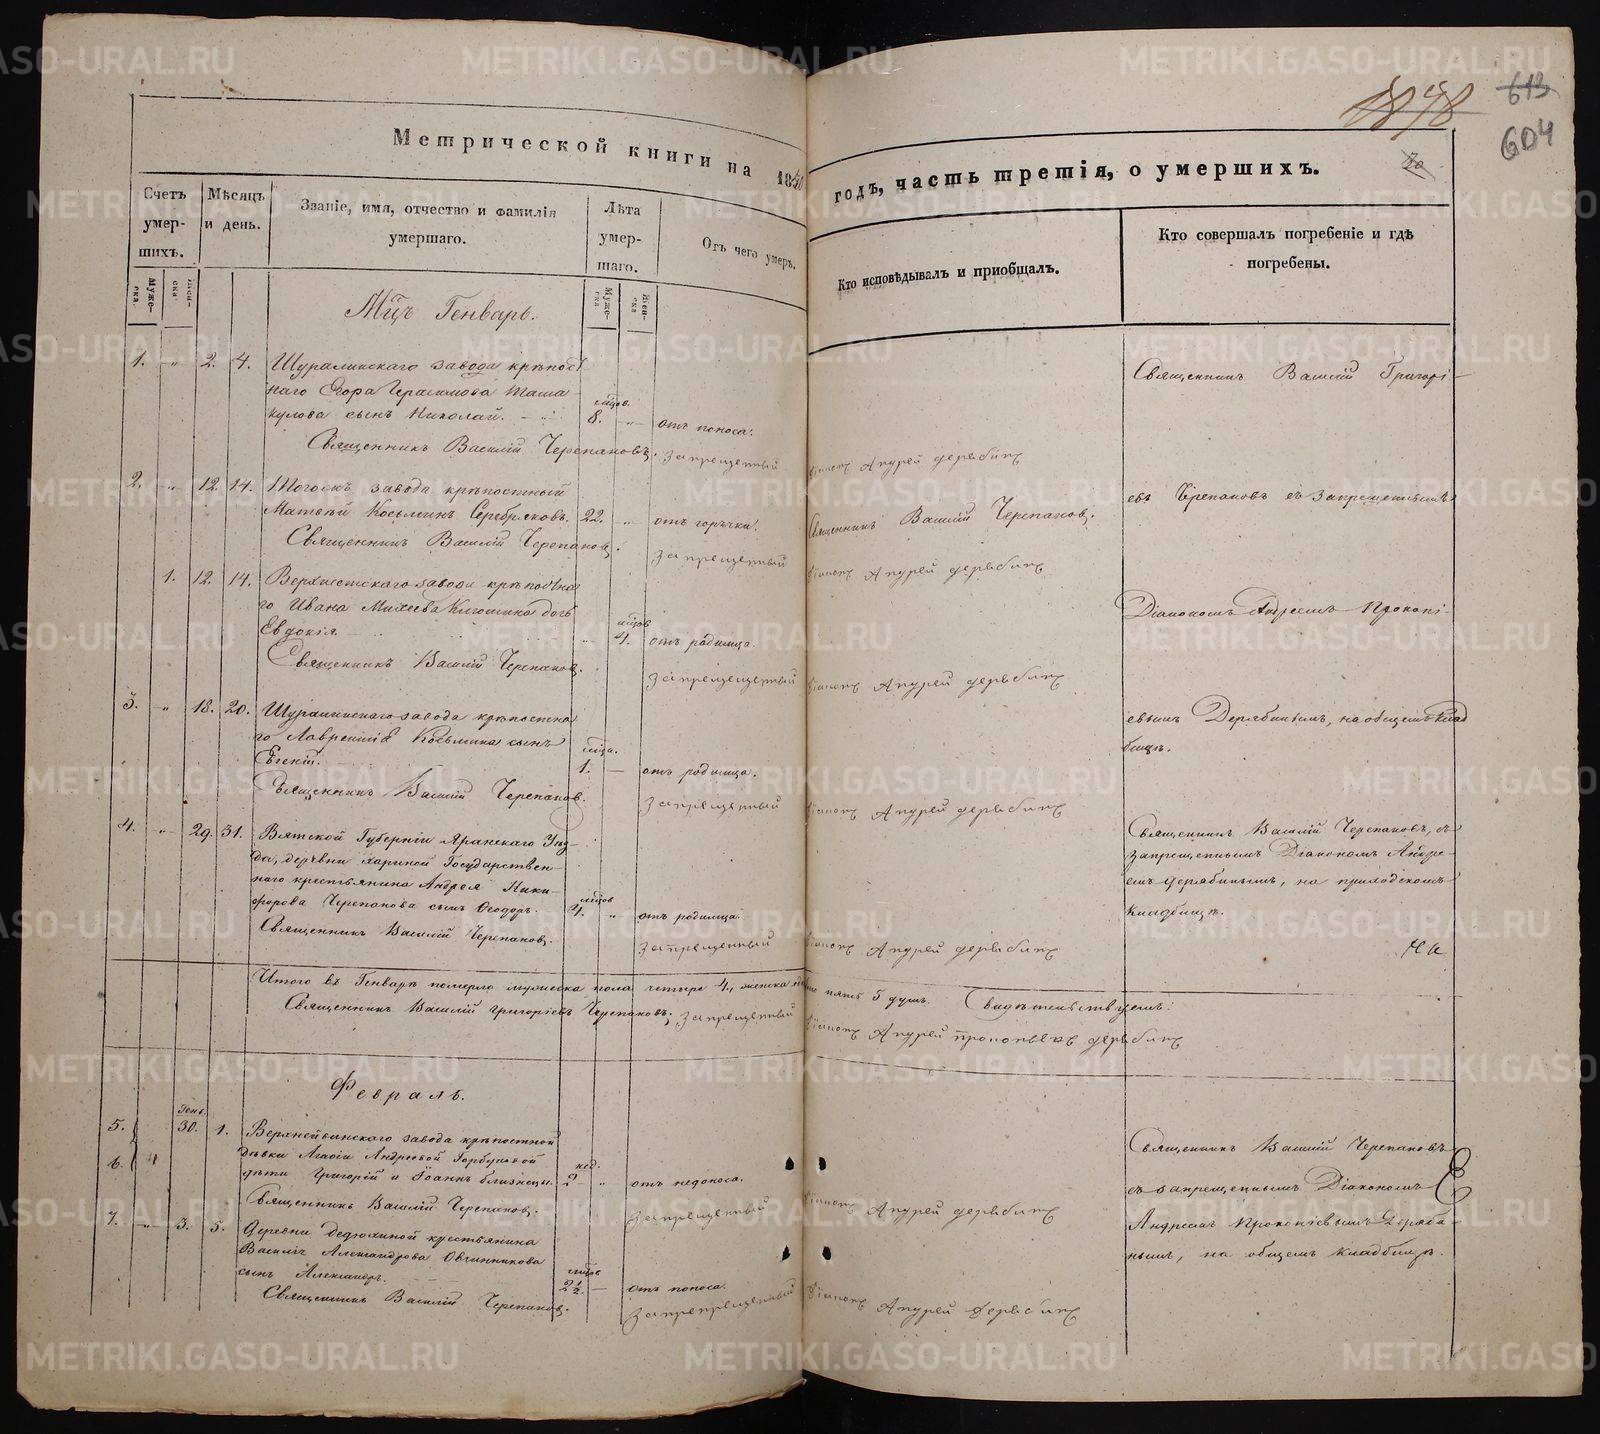 Метрической книги на 18
годъ, часть третія, о умершихъ.
1848
613
604
Счетъ умер-шихъ.
Мѣсяцъ и день.
Званіе, имя, отчество и фамилія умершаго.
Лѣта умер-шаго.
Отъ чего умеръ.
Кто исповѣдывалъ и пріобщалъ.
Кто совершалъ погребеніе и гдѣ погребены.
Муже-ска.
Жен-ска
Муже-ска
Жен-ска
Мцъ Генварь.
1. " 2. 4. Шуралинскаго завода крѣпост
наго Егора Герасимова Таша
кулова сынъ Николай. мцов. 8. отъ поноса.
Священникъ Василій Черепановъ. Запрещенный діаконъ Андрей Дерябинъ
2. " 12. 14. Тогожъ завода крѣпостный
Матвѣй Косьминъ Серебряковъ. 22. " отъ горячки. Священникъ Василій Черепановъ.
Священникъ Василій Черепановъ. Запрещенный діаконъ Андрей Дерябинъ
1. 12. 14. завода крѣпостна
го Ивана Михеева дочь
Евдокія. " мцов 4. отъ родимца.
Священникъ Василій Черепановъ. Запрещенный діаконъ Андрей Дерябинъ
3. " 18. 20. Шуралинскаго завода крѣпостна
го Лаврентія Косьмина сынъ
Евгеній. мца. 1. — отъ родимца.
Священникъ Василій Черепановъ. Запрещенный діаконъ Андрей Дерябинъ
Священникъ Василій Григорі-
евъ Черепановъ съ запрещеннымъ
Діакономъ Андреемъ Прокопі-
евымъ Дерябинымъ, на общемъ клад
бищѣ.
4. " 29. 31. Вятской Губерніи Яранскаго Уѣз-
да, деревни Государствен-
наго крестьянина Андрея Ники-
форова Черепанова сынъ Ѳеодоръ. мцов 4. " отъ родимца.
Священникъ Василій Черепановъ. Запрещенный діаконъ Андрей Дерябинъ
Священникъ Василій Черепановъ, съ
запрещеннымъ Діакономъ Андре-
емъ Дерябинымъ, на приходскомъ
кладбищѣ.
Итого въ Генварѣ померло мужеска пола четыре 4, женска пять 5 душъ. Свидѣтельствуемъ:
Священникъ Василій Григоріевъ Черепановъ; Запрещенный діаконъ Андрей Прокопьевъ Дерябинъ
Февраль.
5. Генв. 30. 1. Верхнейвинскаго завода крѣпостной
6. дѣвки Агафіи Андреевой Горбуновой
дѣти Григорій и Іоаннъ близнецы. нед. 2 " отъ недоноса.
Священникъ Василій Черепановъ. Запрещенный діаконъ Андрей Дерябинъ
7. " 3. 5. Деревни крестьянина
Василія Александрова Овчинникова
сынъ Александръ. мцов 2½ — отъ поноса.
Священникъ Василій Черепановъ. діаконъ Андрей Дерябинъ
Священникъ Василій Черепановъ
съ запрещеннымъ Діакономъ
Андреемъ Прокопіевымъ Деряби-
нымъ, на общемъ кладбищѣ.
METRIKI.GASO-URAL.RU